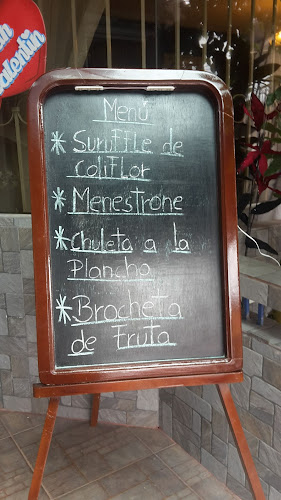 Valentín
Menú
* Suruffle de
coliflor
* Menestrone
* Chuleta a la
Plancha
* Brocheta
de Fruta